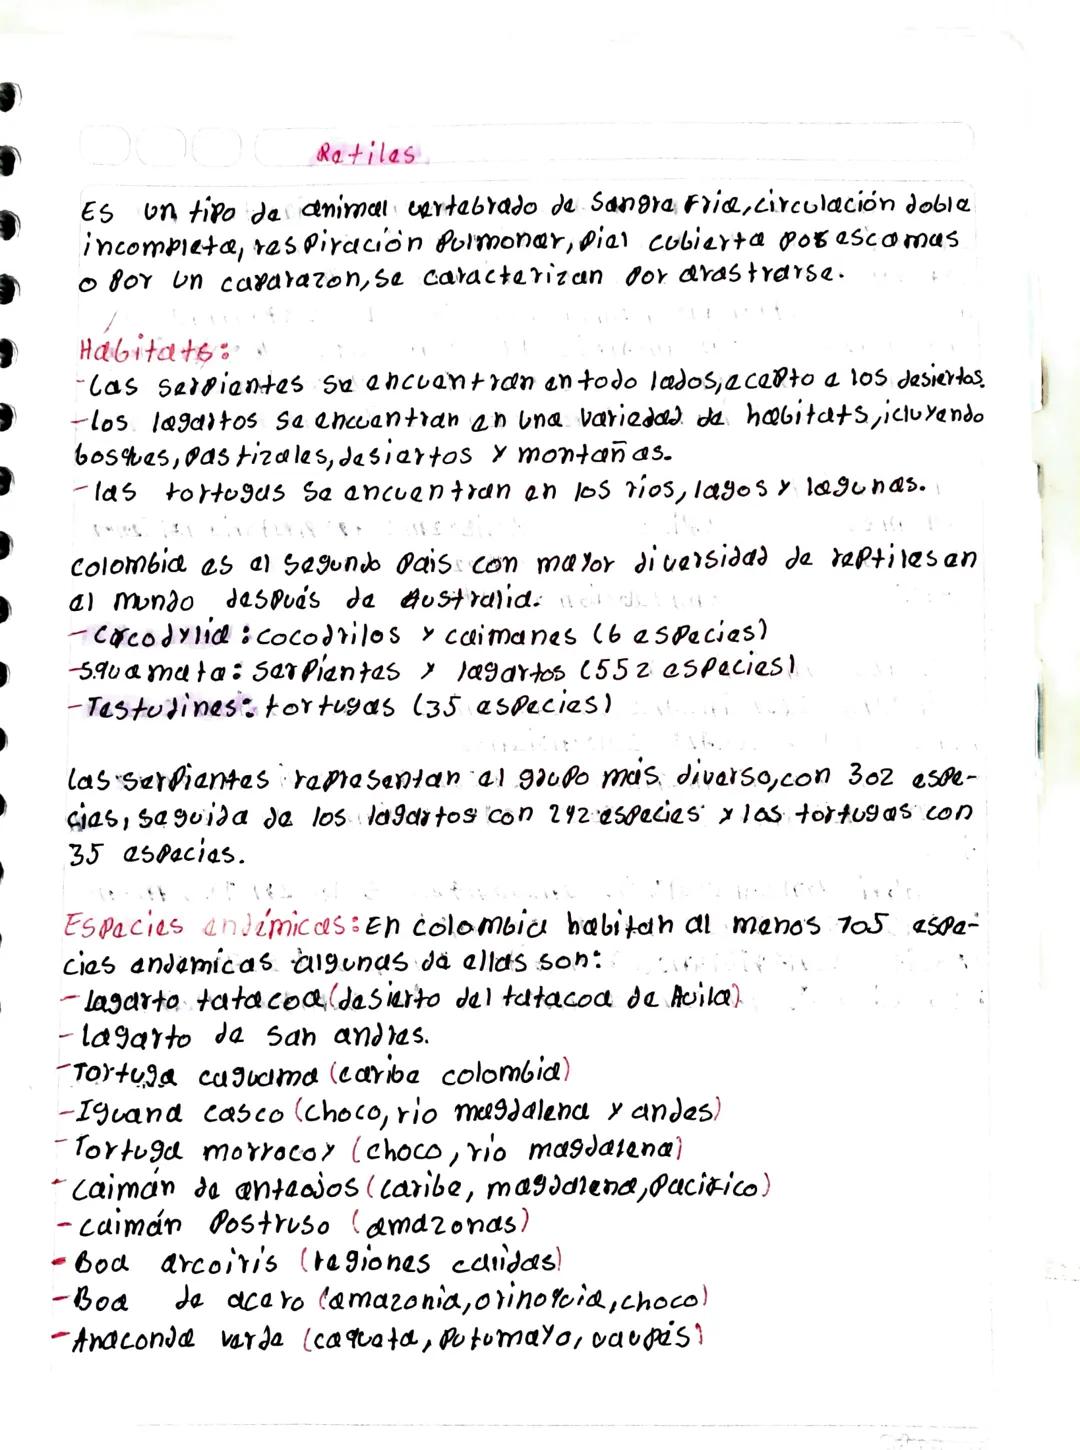 Retiles
Es un tipo de animal vertebrado de Sangre Fria, circulación doble
incompleta, respiración Pulmonar, piel cubierta por escamas
o por un caparazon, se caracterizan por arastrarse.
Hábitats:
-las serpientes se encuentran en todo lados, acepto a los desiertos.
-los lagartos se encuentran en una variedad de habitats, icluyendo
bosques, pastizales, desiertos y montañas.
-las tortugas se encuentran en los rios, lagos y lagunas.
colombia es el segundo pais con mayor diversidad de reptiles en
el mundo después de Australia.
-Cocodylia: cocodrilos y caimanes (6 especies)
-squamata: serpientes y lagartos (552 especies)
-Testudines: tortugas (35 especies)
las serpientes representan el grupo más diverso, con 302 espe-
cies, seguida de los lagartos con 242 especies y las tortugas con
35 especies.
Especies endémicas: En colombia habitan al menos 105 espe-
cies endemicas algunas de ellas son:
-lagarto tatacoa (desierto del tatacoa de Auila)
-lagarto de San andres.
-Tortuga caguama (caribe colombia)
-Iguana casco (choco, rio magdalena y andes)
-Tortuga morrocoy (choco, río magdalena)
-caimán de anteojos (caribe, magdalena, pacifico)
-caimán Postruso (amazonas)
-Boa arcoiris (regiones calidas)
-Boa de acero (amazonia, orinoquia, choco)
-Anaconda verde (caqueta, putumayo, vaupés)